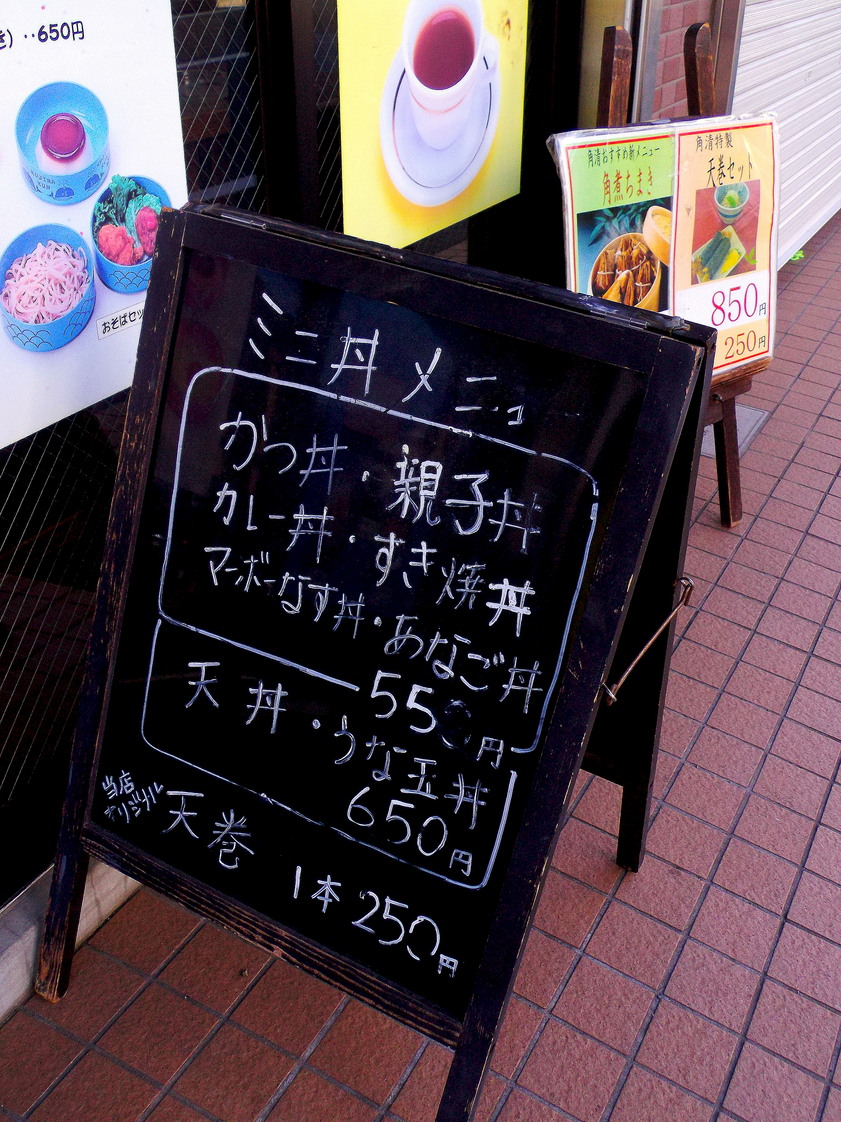 き）‥650円
おそばセッ
角清おすすめ新メニュー
角煮ちまき
角清特製
天巻セット
850円
250円
ミニ丼メニュ
かつ丼・親子丼
カレー丼・すき焼丼
マーボーなす丼・あなご丼
550円
天丼・うな玉丼
650円
当店
オリジナル
天巻 1本 250円